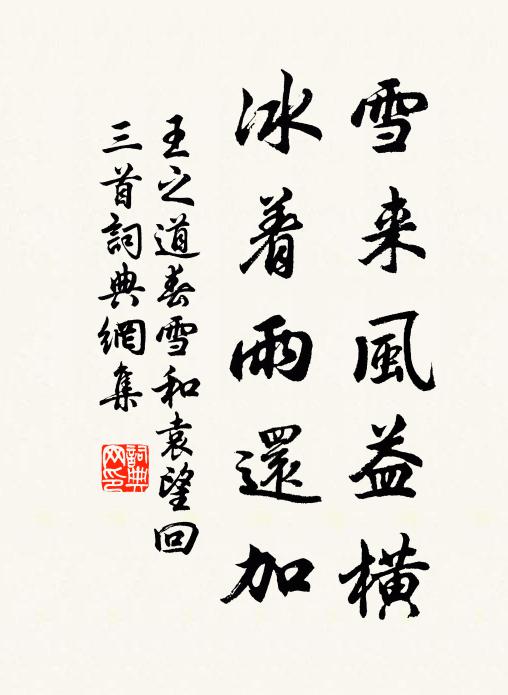 雪来風益横
冰着雨還加
王之道春雪和袁望回
三首詞典網集
詞典网印